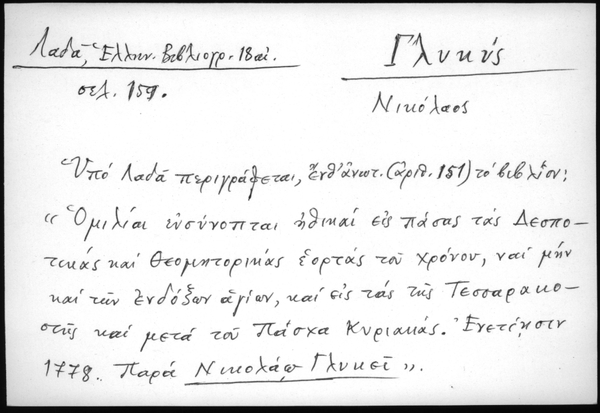 Λαδᾶ, Ἑλλην. Βιβλιογρ. 18 αἰ.
Γλυκύς
σελ. 159.
Νικόλαος
Ὑπό Λαδᾶ περιγράφεται, ἔνθ' ἀνωτ. (ἀριθ. 151) τό βιβλίον:
« Ὁμιλίαι εὐσύνοπται ἠθικαί εἰς πάσας τάς Δεσπο-
τικάς καί Θεομητορικάς ἑορτάς τοῦ χρόνου, ναί μήν
καί τῶν ἐνδόξων ἁγίων, καί εἰς τάς τῆς Τεσσαρακο-
στῆς καί μετά τοῦ Πάσχα Κυριακάς. Ἐνετίῃσιν
1778. Παρά Νικολάῳ Γλυκεῖ ».